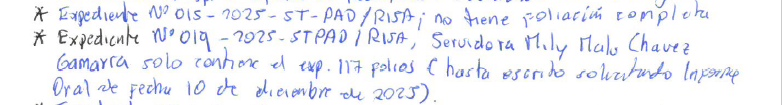 * Expediente Nº 015-2025-ST-PAD/RISA; no tiene foliación completa
* Expediente Nº 019-2025-STPAD/RISA, Servidora Mily Malu Chavez
Gamarra solo contiene el exp. 117 folios (hasta escrito solicitando Informe
Oral de fecha 10 de diciembre de 2025).